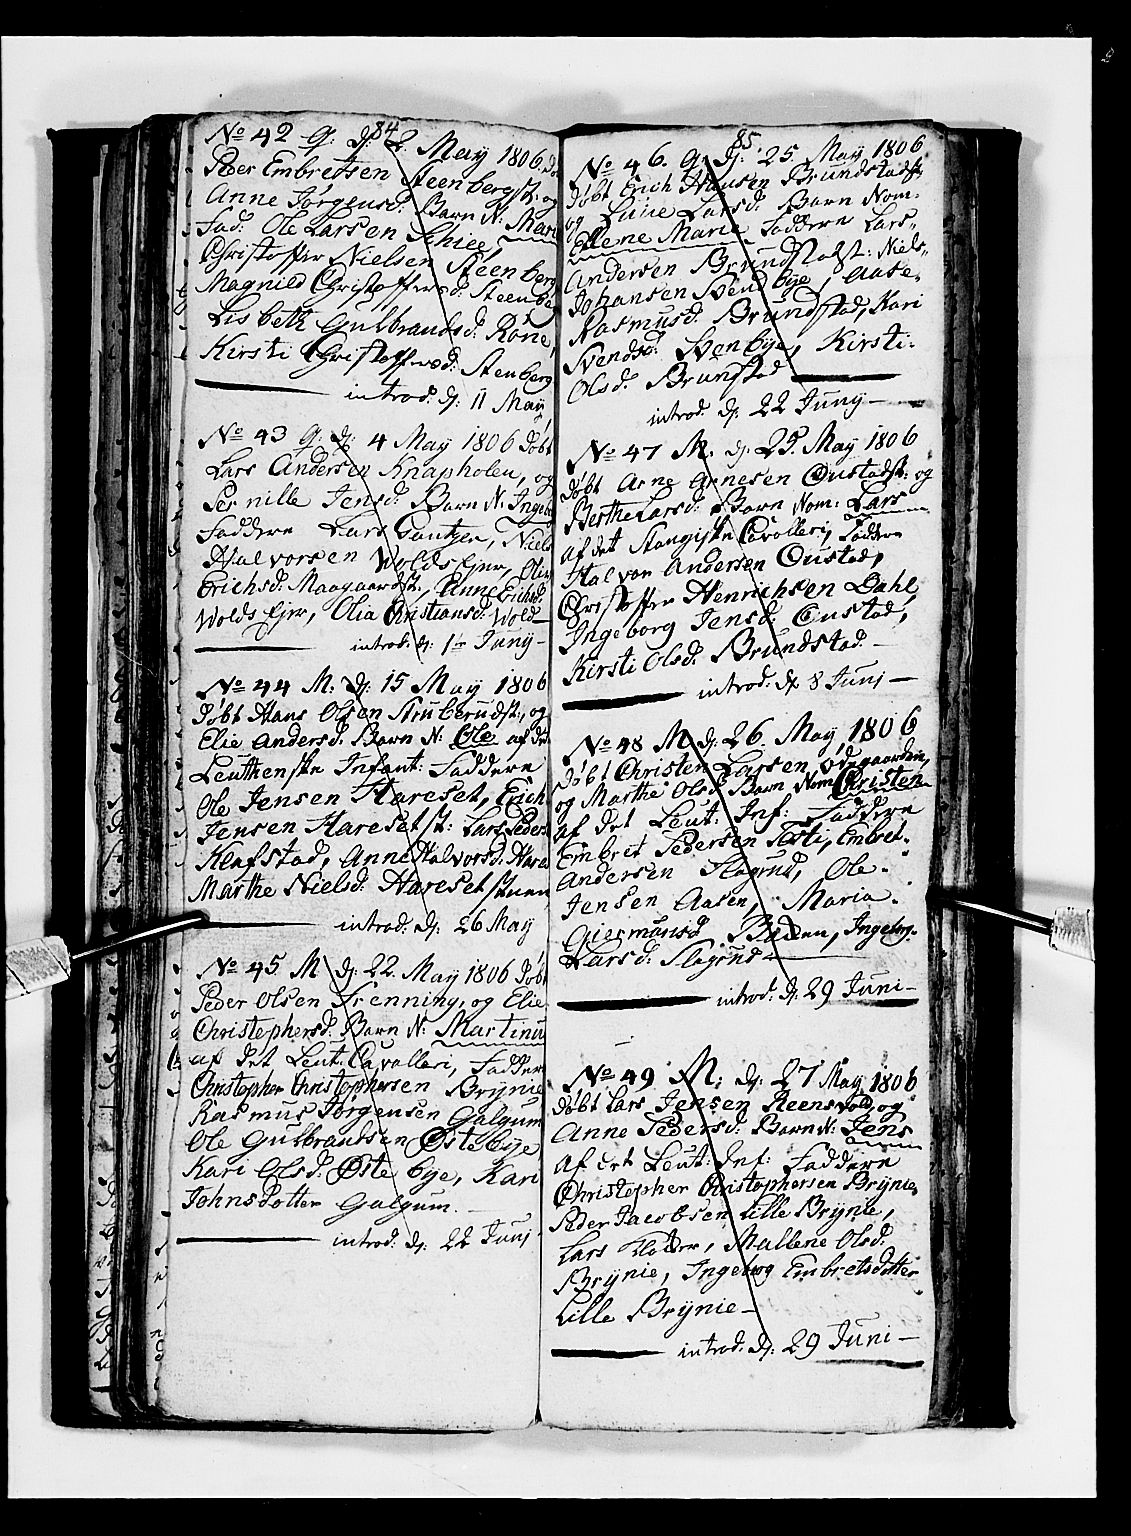 84
No 42 Q: d: 2 May 1806. dø
Peder Embretsen Steenbergst: og
Anne Jørgensd: Barn N: Mari
Fad: Ole Larsen Schiee,
Christoffer Nielsen Steenberg
Magnild Christoffersd: Steenbe
Lisbeth Gulbrandsd: Røne,
Kirsti Christoffersd: Stenberg
introd. d: 11 May
No 43 Q: d: 4 May 1806 døbt
Lars Andersen Knapholen, og
Pernille Jensd: Barn N: Ingeb
Faddere Lars Gautzen, Niels
Halvorsen Wolds Ejer, Olia
Erichsd: Maagaardst:, Anne Erichsd:
Wolds Ejer, Olia Christiansd: Wold
introd: d: 1ste Juny
No 44 M: d: 15 May 1806
døbt Hans Olsen Struberudst:, og
Elie Andersd: Barn N: Ole af det
Leuthenske Infant: Faddere
Ole Jensen Hareset, Erich
Jensen Haresetst: Lars Peders
Klafstad, Anne Halvorsd: Hare
Marthe Nielsd: Haresetstuen
introd: d: 26 May
No 45. M d: 22. May 1806 døbt
Peder Olsen Frenning, og Elie
Christophersd: Barn N: Martinu
af det Leut: Cavalleri, Fadder
Christopher Christophersen Brynie
Rasmus Jørgensen Galgum
Ole Gulbrandsen Østebye
Kari Olsd: Østebye, Kari
Johnsdotter Galgum.
introd: d: 22 Junj
85
No 46. Q: d: 25. May 1806
døbt Erich Hansen Brundstadst:
og Luie Larsd: Barn Nom:
Ellene Maria Faddere Lars
Andersen Brundstadst: Niels
Johansen Svendbye, Aase
Rasmusd: Brundstad, Kari
Svendsd: Svenbye, Kirsti
Olsd: Brunstad
introd: d: 22 Juny
No 47 M. d: 25. May 1806
døbt Arne Arnesen Oustadst: og
Berthe Larsd: Barn Nom: Lars
af det Stangiske Cavalleri, Faddere
Halvor Andersen Oustad,
Christoffer Henrichsen Dahl,
Ingeborg Jensd: Oustad,
Kirsti Olsd: Brundstad.
introd: d: 8 Junj
No 48 M d: 26. May 1806
døbt Christen Larsen Ødegaarden,
og Marthe Olsd: Barn Nom: Christen
af det Leut: Inf: Faddere
Embret Pedersen Sæti, Embret
Andersen Slagrud, Ole
Jensen Aasen, Maria
Giermunsd: Baden, Ingebrg.
Larsd: Slagrud
introd: d: 29 Juni
No 49 M: d: 27 May 1806
døbt Lars Jensen Reensvold, og
Anne Pedersd: Barn N: Jens
af det Leut: Inf: Faddere
Christopher Christophersen Brynie,
Peder Jacobsen Lille Brynie,
Lars Kladder, Mallene Olsd:
Brynie, Ingeborg Embretsdotter
Lille Brynie
introd: d: 29 Juni